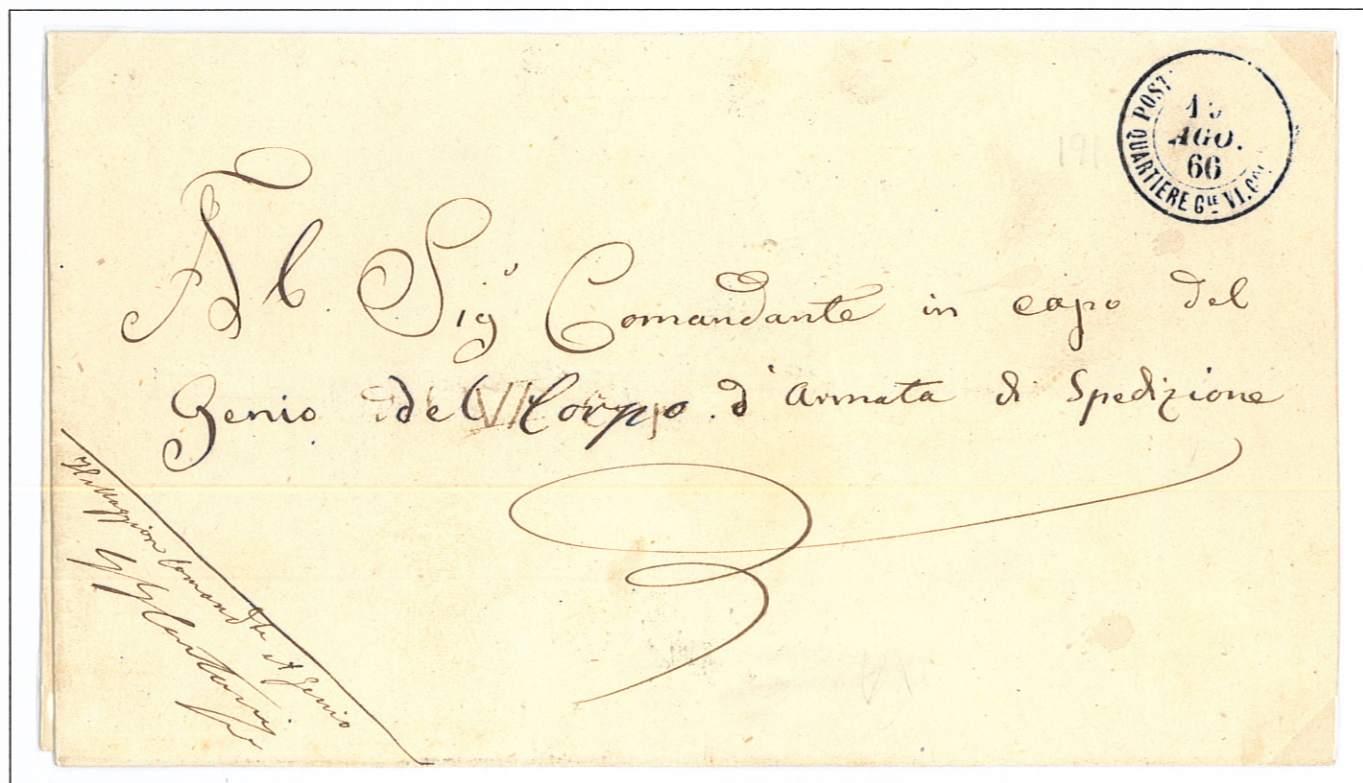 POST
AGO.
66
QUARTIERE Gle VI.
191
Al Sigr Comandante in capo del
Genio del Corpo d'Armata di Spedizione
Il Maggiore Comandte il Genio